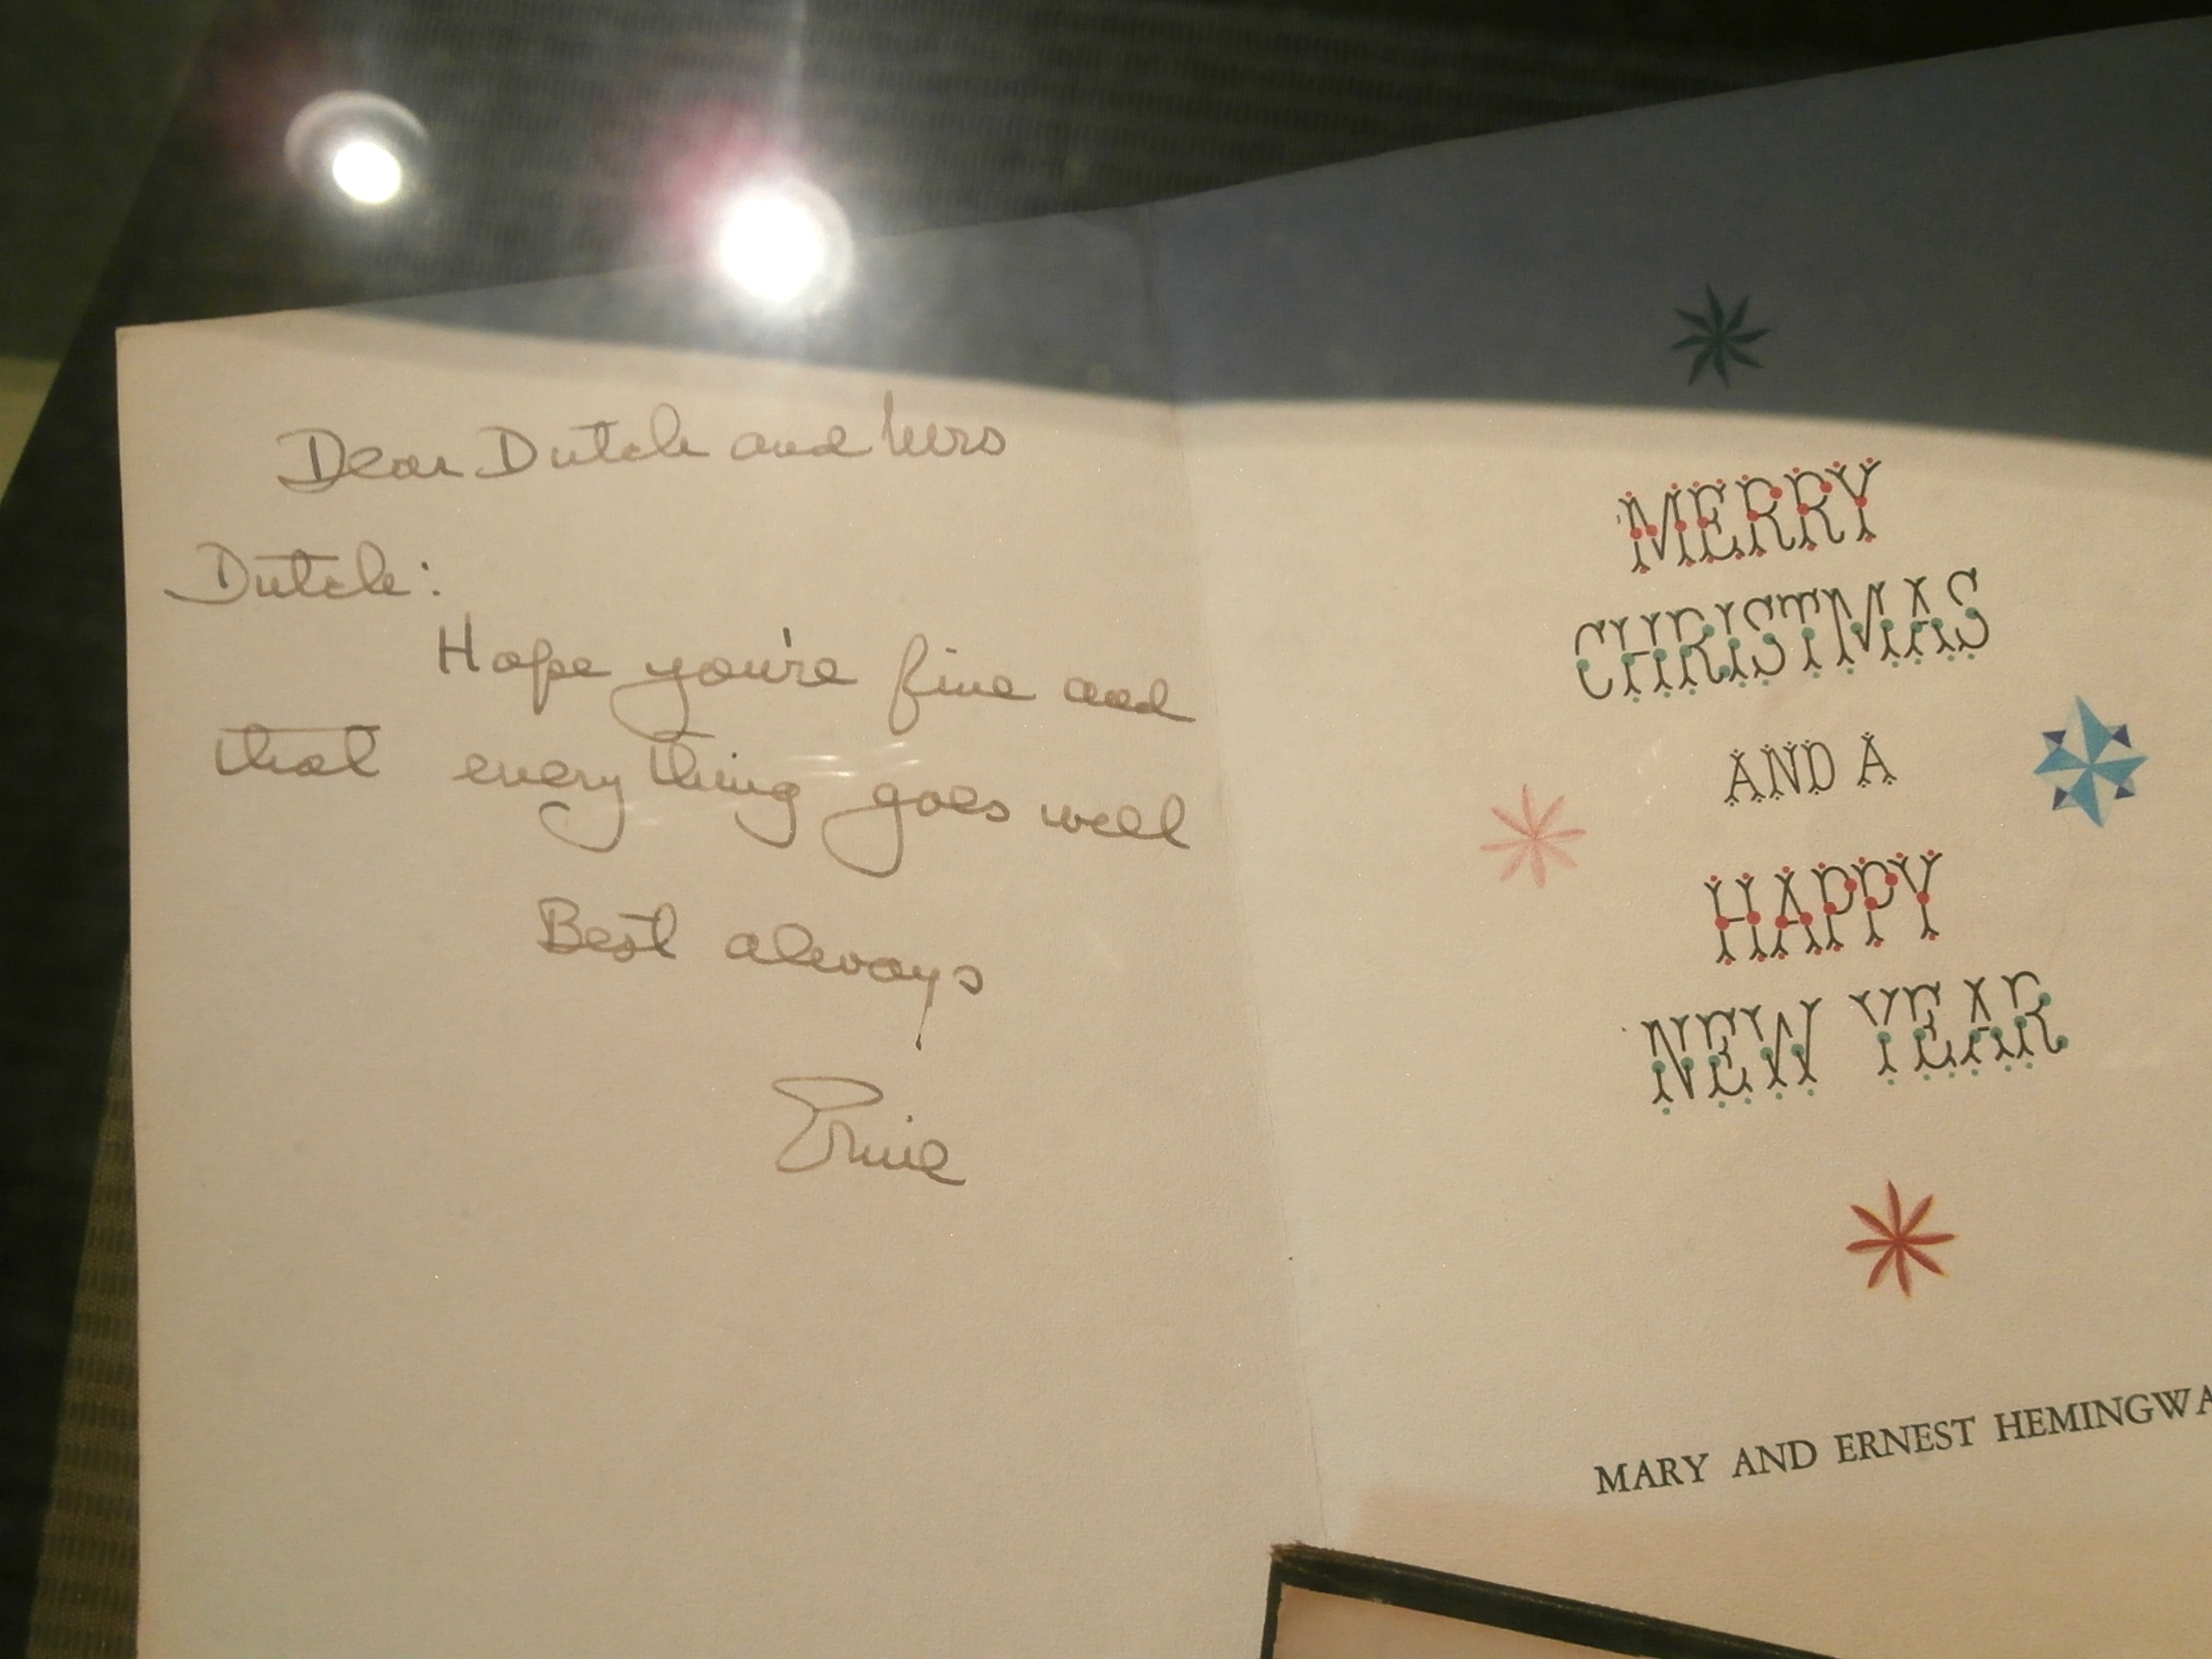 Dear Dutch and Mrs
Dutch:
Hope you're fine and
that everything goes well
Best always
Ernie
MERRY
CHRISTMAS
AND A
HAPPY
NEW YEAR
MARY AND ERNEST HEMINGWA